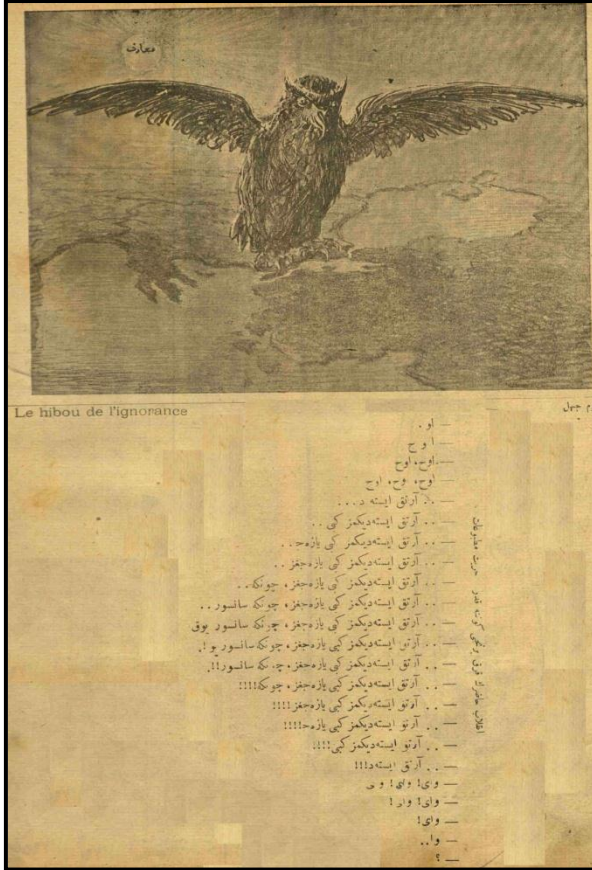 معارف
Le hibou de l'ignorance
جهل
— او .
— ا و ح
— اوح، اوح
— اوح، وح، اوح
— .. آرتق ایسته د...
— .. آرتق ایسته‌دیكمز كبی ..
— .. آرتق ایسته‌دیكمز كبی یازه‌ح..
— .. آرتق ایسته‌دیكمز كبی یازه‌جغز ..
— .. آرتق ایسته‌دیكمز كبی یازه‌جغز، چونكه..
— .. آرتق ایسته‌دیكمز كبی یازه‌جغز، چونكه سانسور..
— .. آرتق ایسته‌دیكمز كبی یازه‌جغز، چونكه سانسور یوق
— .. آرتق ایسته‌دیكمز كبی یازه‌جغز، چونكه سانسور یو!.
— .. آرتق ایسته‌دیكمز كبی یازه‌جغز، چونكه سانسور!!.
— .. آرتق ایسته‌دیكمز كبی یازه‌جغز، چونكه!!!!
— .. آرتق ایسته‌دیكمز كبی یازه‌جغز!!!!
— .. آرتو ایسته‌دیكمز كبی یازه‌ح!!!!
— .. آرتو ایسته‌دیكمز كبی!!!!
— .. آرتق ایسته‌د!!!
— وای! وای! و ی
— وای! وای !
— وای!
— وا..
— ؟
حریت مطبوعات